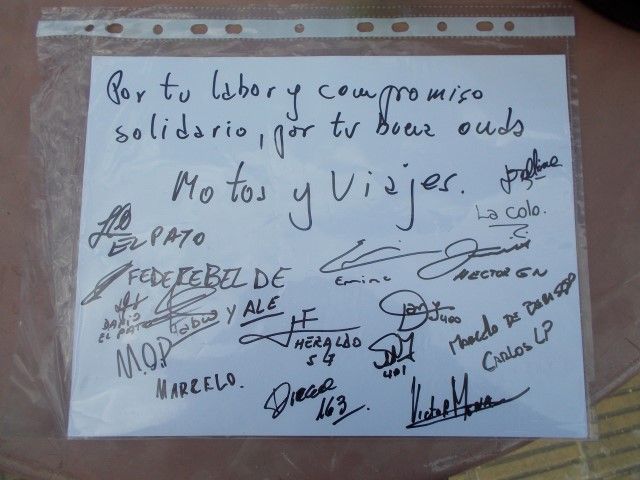 Por tu labor y compromiso
solidario, por tu buena onda
Motos y Viajes.
La Colo.
EL PATO
HECTOR GN
FEDE REBELDE
DARIO
EL PATO
Pablo y ALE
HERALDO
54
401
MARCELO DE
CARLOS LP
M.O.P
MARCELO.
Diego
163
Victor